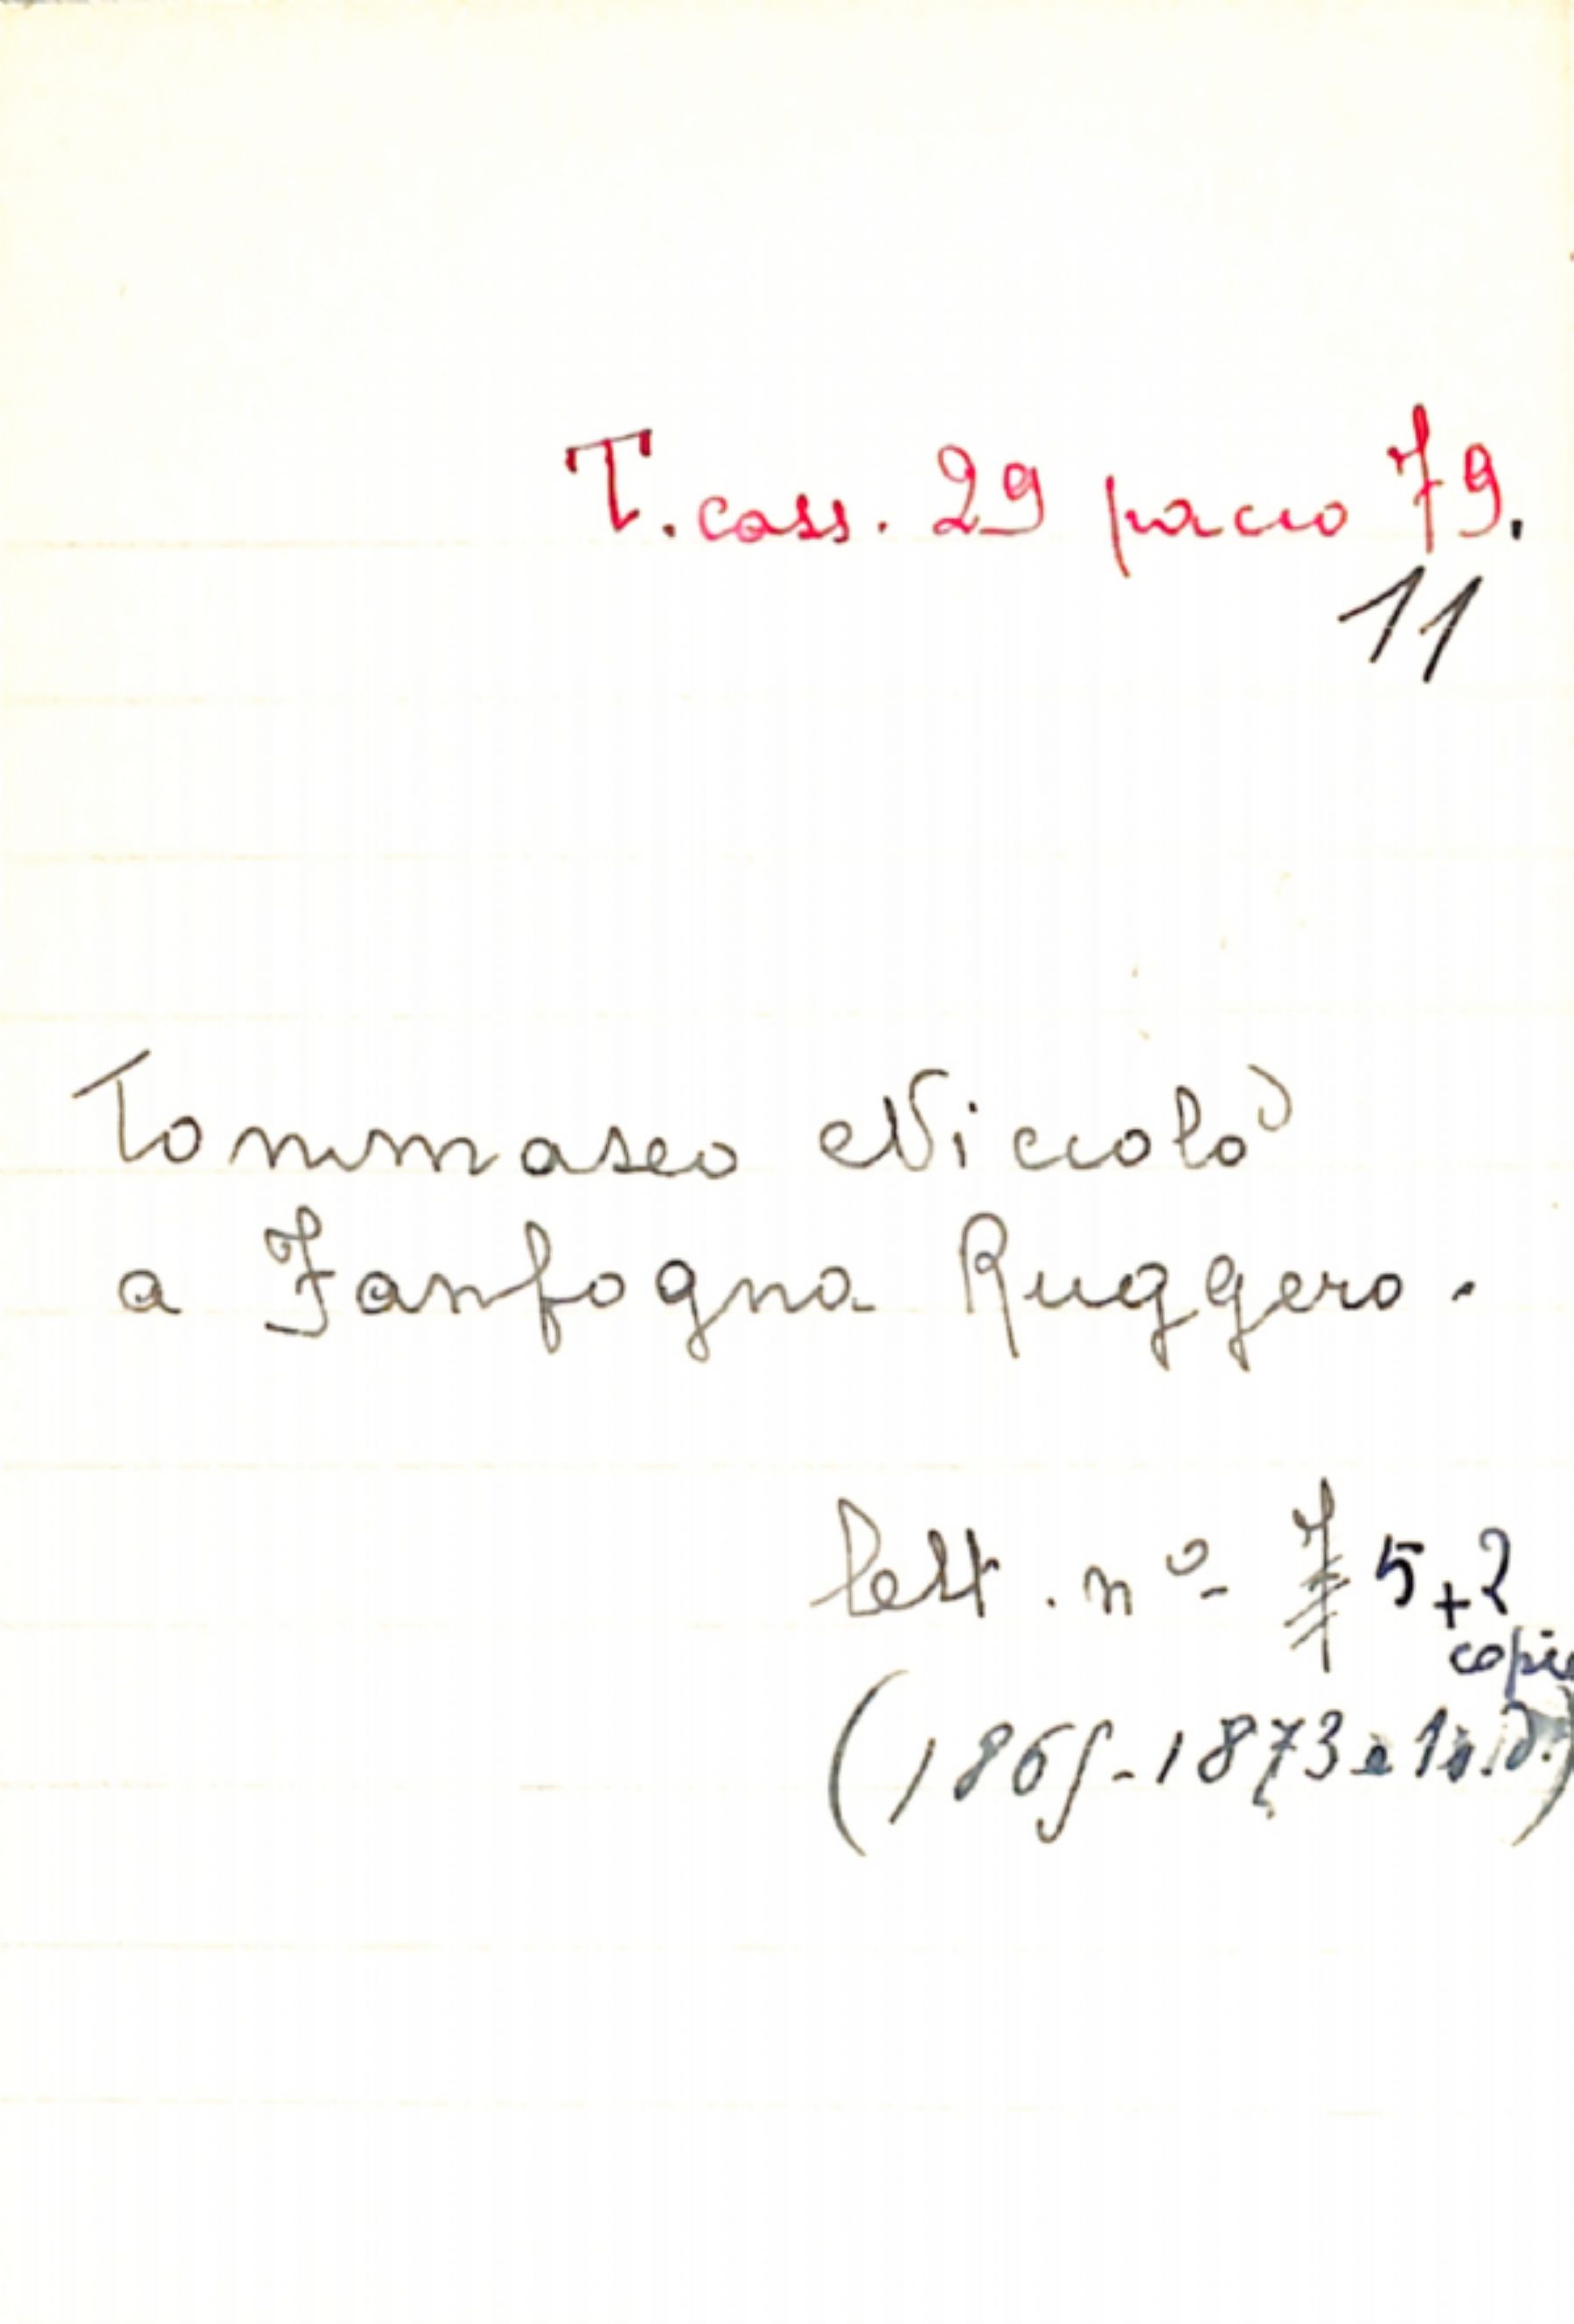 T. cass. 29 pacco 79.
11
Tommaseo Niccolò
a Fanfogna Ruggero.
lett. nº 7 5+2
copie
(1865-1873 e 1 s.d.)